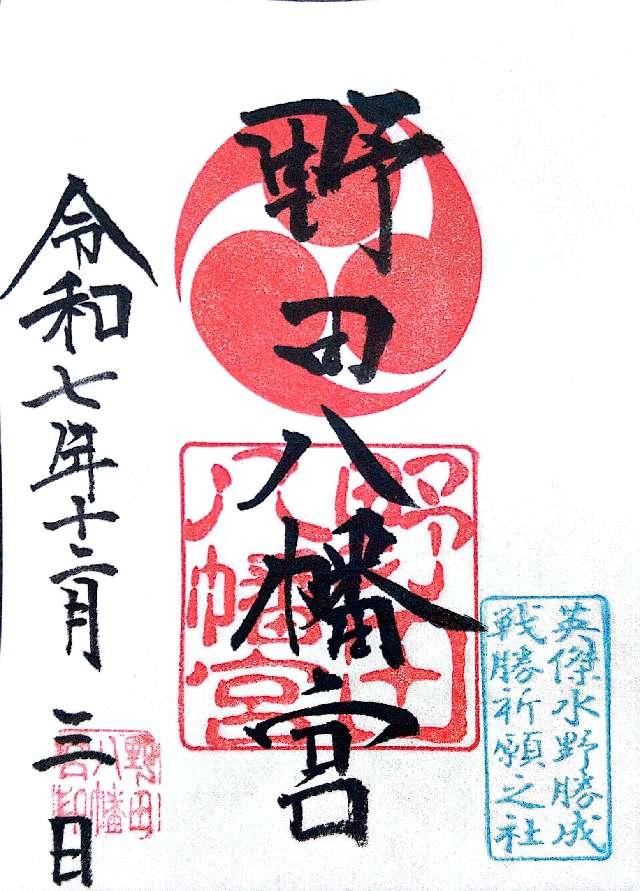 英傑水野勝成
戦勝祈願之社
野田八幡宮
野田
八幡宮
令和七年十二月三日
野田
八幡
宮印